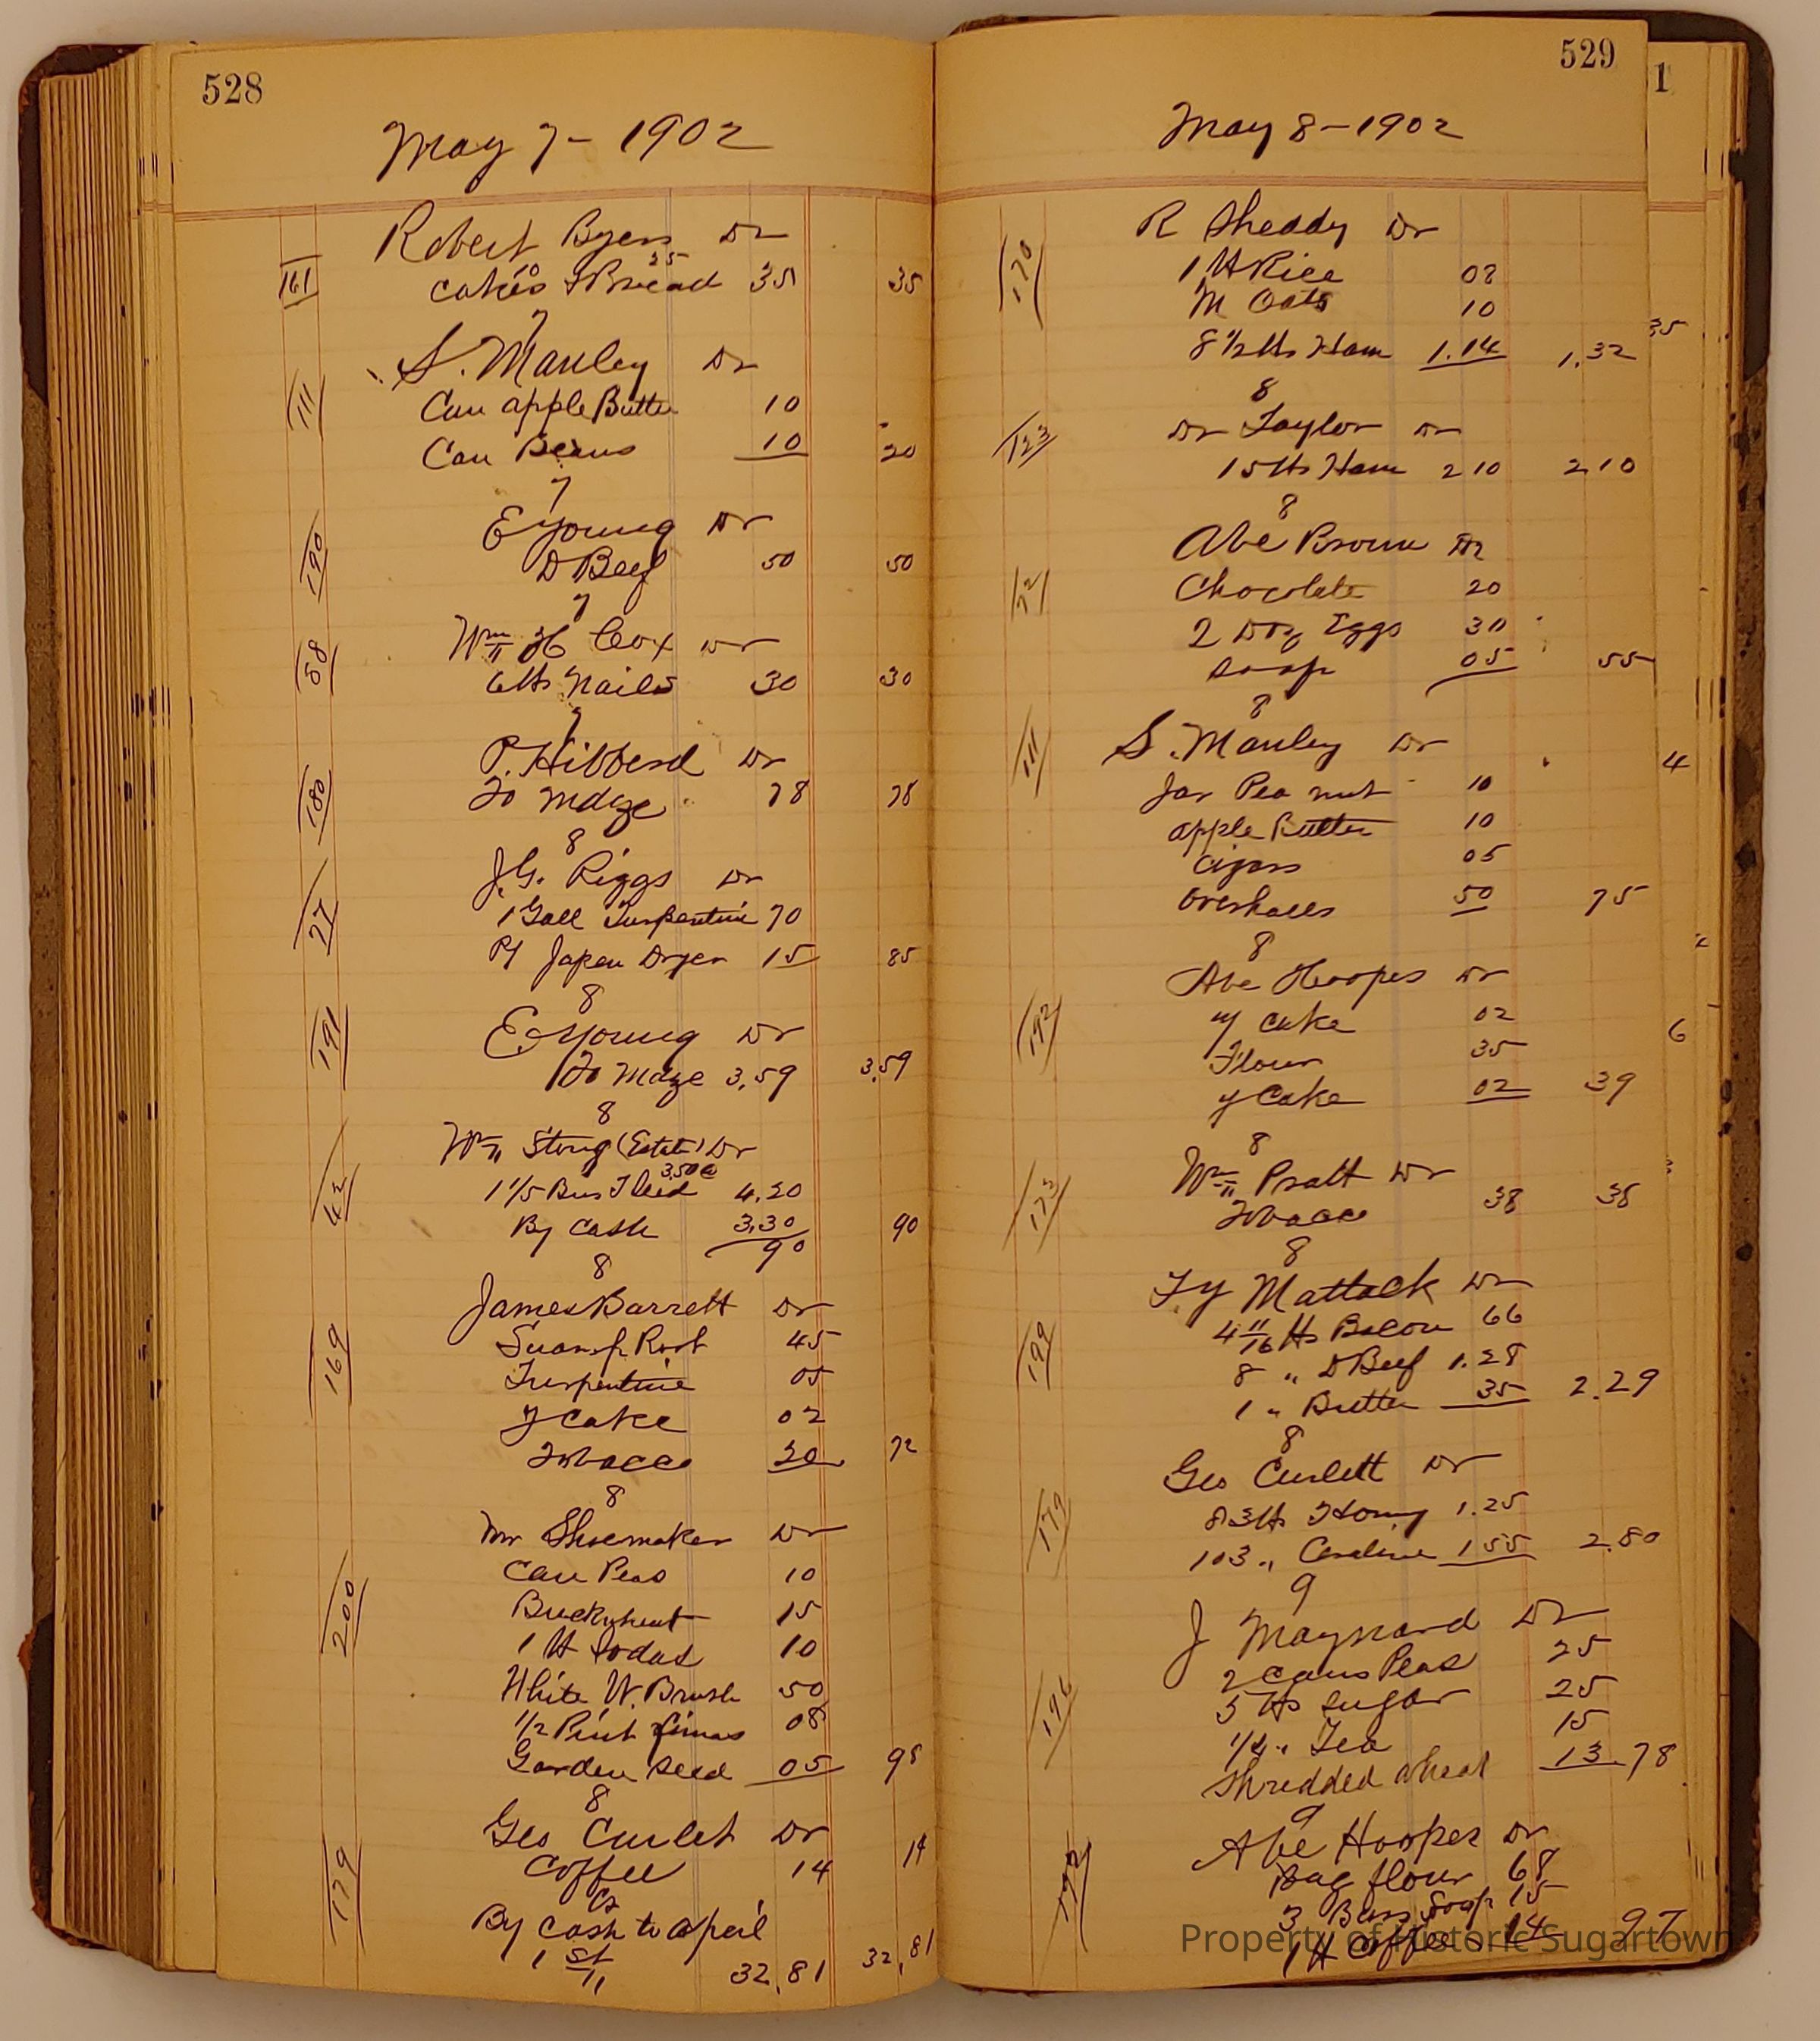 528
May 7 - 1902
Robert Byers Dr
10 25
161 Cakes & Bread 35 35
7
S. Manley Dr
111 Can apple Butter 10
Can Beans 10 20
7
E Young Dr
190 D Beef 50 50
7
Wm H Cox Dr
58 6 lbs Nails 30 30
7
P. Hibberd Dr
180 To Mdze 78 78
8
J. G. Riggs Dr
77 1 Gall Turpentine 70
Pt Japan Dryer 15 85
8
E. Young Dr
191 To Mdze 3.59 3.59
8
Wm Strong (Estate) Dr
3.50 @
42 1 1/5 Bus Seed 4.20
By Cash 3.30 90
90
8
James Barrett Dr
Swamp Root 45
169 Turpentine 05
Y Cake 02
Tobacco 20 72
8
Mr Shoemaker Dr
Can Peas 10
Buckwheat 15
200 1 lb Sodas 10
White W. Brush 50
1/2 Pint Limas 08
Garden Seed 05 98
8
Geo Curlet Dr
Coffee 14 14
179 Cr
By Cash to April
1st 32.81 32.81
529
May 8 - 1902
R Sheddy Dr
170 1 lb Rice 08
M Oats 10
8 1/2 lbs Ham 1.14 1.32
8
123 Dr Taylor Dr
15 lbs Ham 2 10 2 10
8
Abe Brown Dr
72 Chocolate 20
2 Doz Eggs 30
Soap 05 55
8
111 S. Manley Dr
Jar Pea nut 10
apple Butter 10
Cigars 05
Overhalls 50 75
8
Abe Hoopes Dr
192 Y Cake 02
Flour 35
Y Cake 02 39
8
Wm Pratt Dr
173 Tobacco 38 38
8
Ty Mattack Dr
4 11/16 lbs Bacon 66
199 8 " D Beef 1.28
1 " Butter 35 2.29
8
Geo Curlett Dr
179 83 lbs Homy 1.25
103 " Cerealine 1 55 2.80
9
J Maynard Dr
2 Cans Peas 25
5 lbs Sugar 25
196 1/4 " Tea 15
Shredded wheat 13 78
9
Abe Hoopes Dr
192 Bag flour 68
3 Bars Soap 15
1 lb Coffee 14 97
Property of Historic Sugartown
1
35
4
6